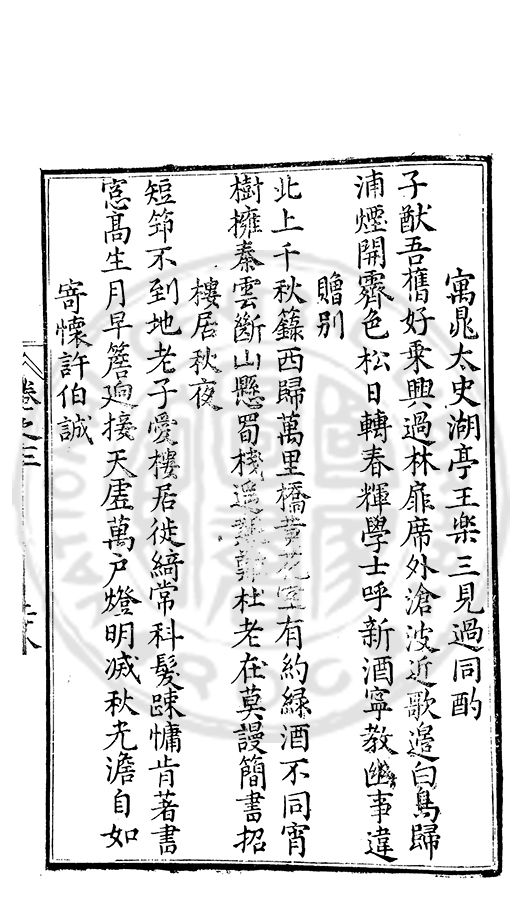 寓晁太史湖亭王樂三見過同酌
子猷吾舊好乘興過林扉席外滄波近歌邉白鳥歸
浦煙開霽色松日轉春輝學士呼新酒寧教幽事違
贈别
北上千秋籙西歸萬里橋黄花空有約緑酒不同宵
樹擁秦雲斷山懸蜀棧遥杜老在莫謾簡書招
樓居秋夜
短笻不到地老子愛樓居徙綺常科髮踈慵肯著書
窓高生月早簷逈接天虛萬戶燈明滅秋光澹自如
寄懷許伯誠
卷之三